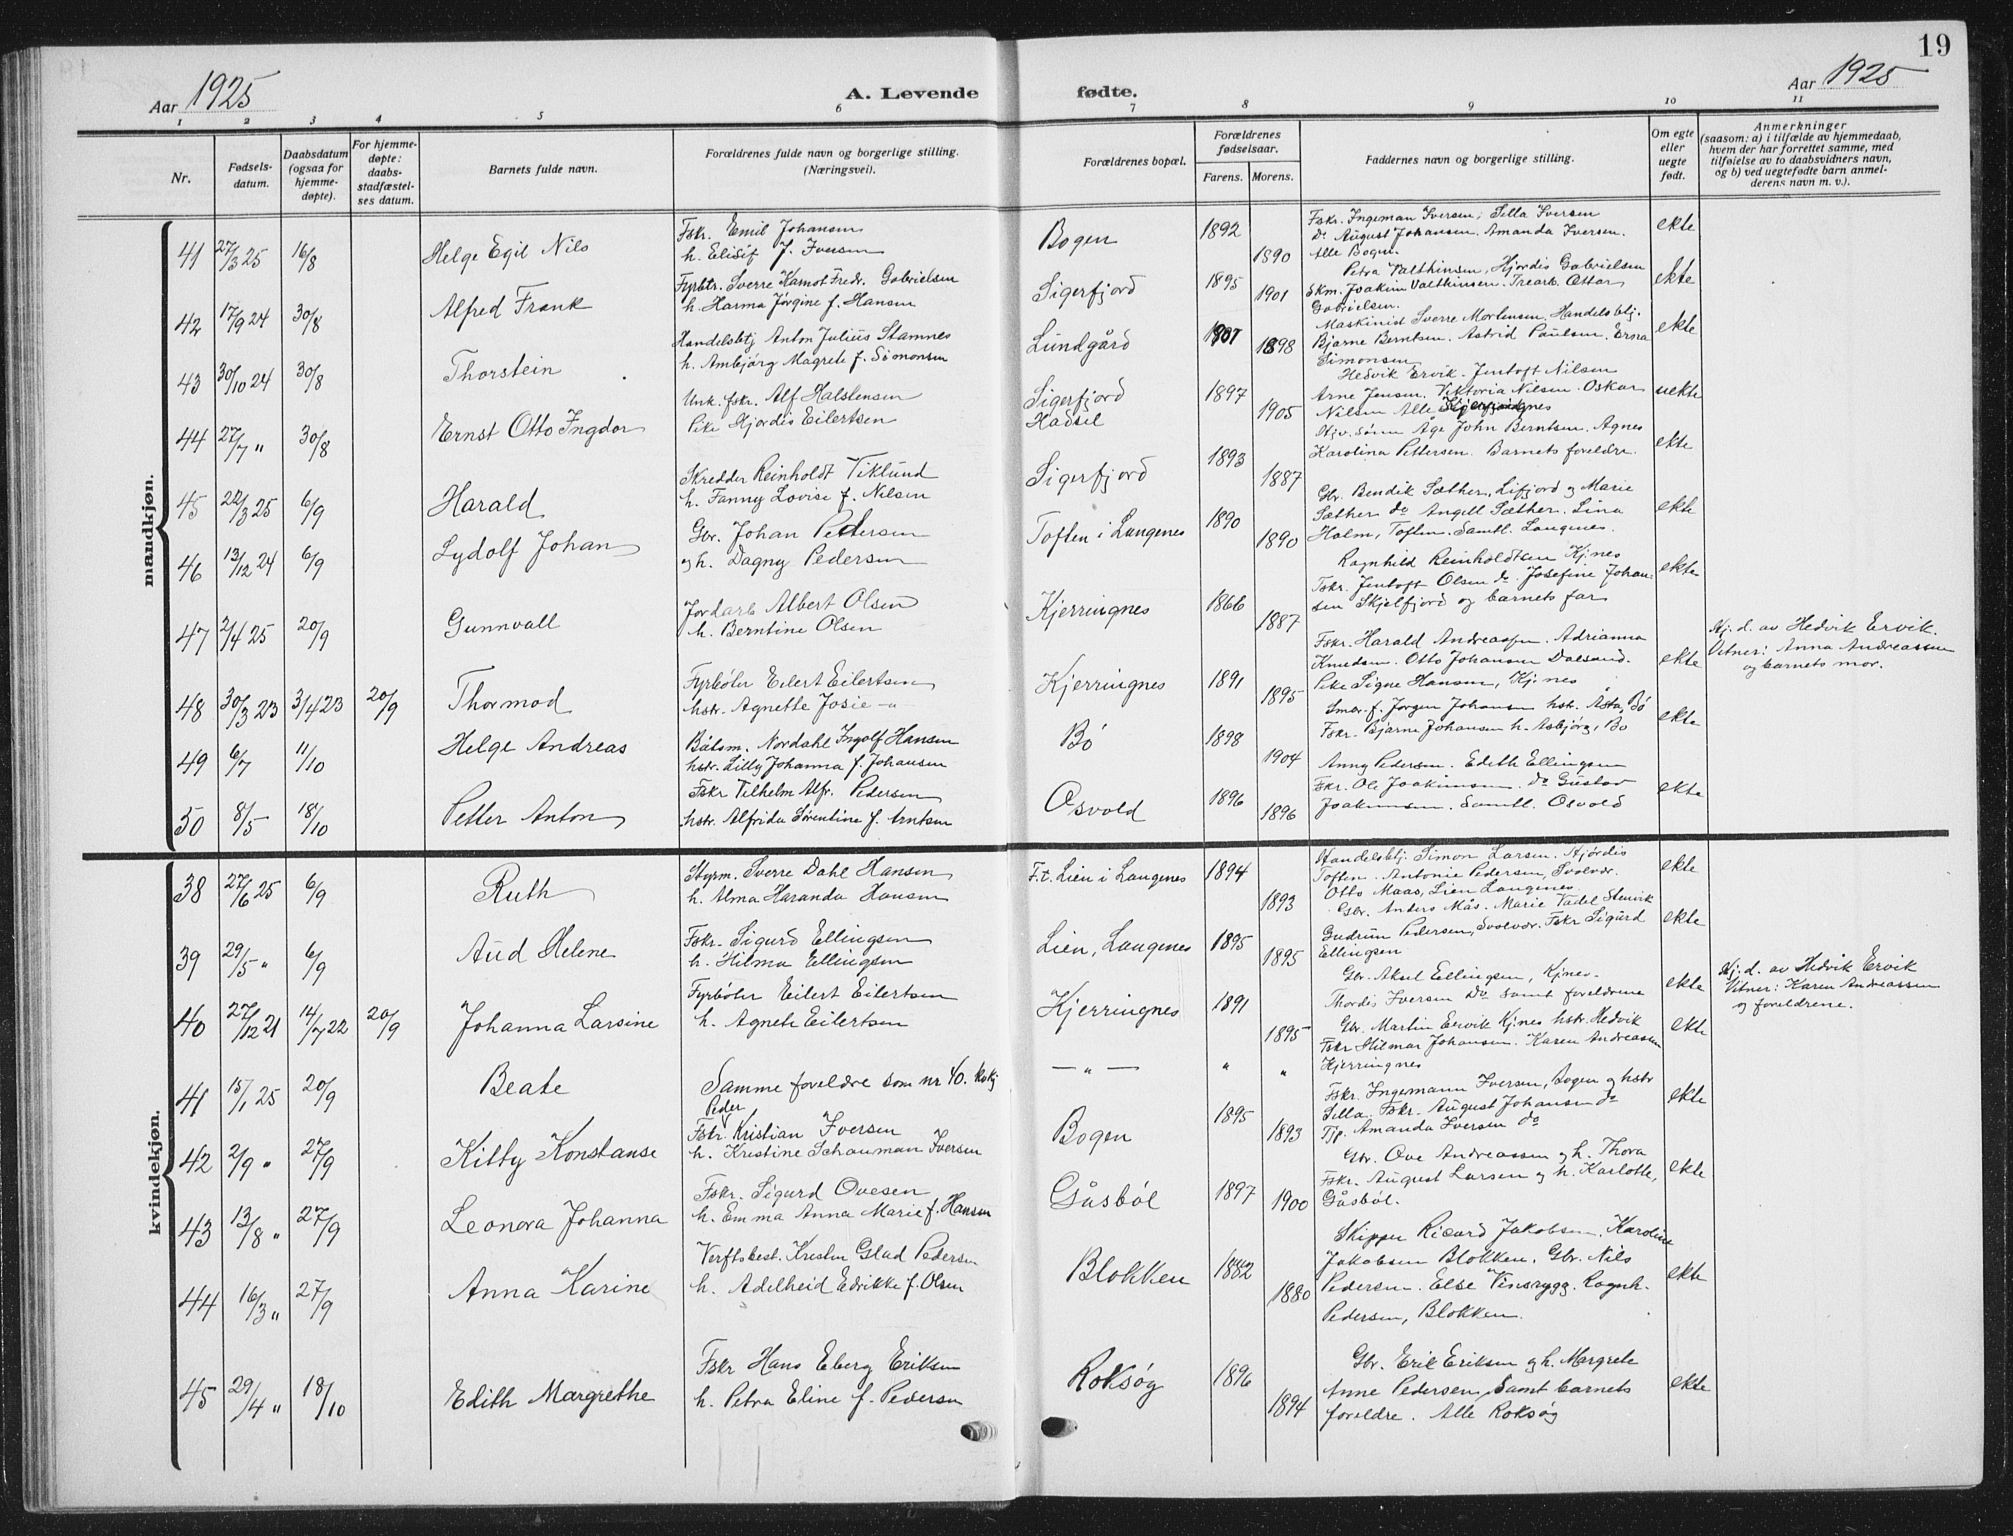 19
Aar 1925
A. Levende fødte.
Aar 1925
1 2 3 4 5 6 7 8 9 10 11
Nr.
Fødsels-
datum.
Daabsdatum
(ogsaa for
hjemme-
døpte).
For hjemme-
døpte:
daabs-
stadfæstel-
ses datum.
Barnets fulde navn.
Forældrenes fulde navn og borgerlige stilling.
(Næringsvei).
Forældrenes bopæl.
Forældrenes
fødselsaar.
Farens. Morens.
Faddernes navn og borgerlige stilling.
Om egte
eller
uegte
født.
Anmerkninger
(saasom: a) i tilfælde av hjemmedaab,
hvem der har forrettet samme, med
tilføielse av to daabsvidners navn,
og b) ved uegtefødte barn anmel-
derens navn m. v.).
mandkjøn.
41 27/3 25 16/8 Helge Egil Nils
Fskr. Emil Johansen
h. Elisif J. Iversen
Bogen 1892 1890
Fskr. Ingeman Iversen, Silla Iversen
Do August Johansen. Amanda Iversen.
Alle Bogen.
ekte
42 17/9 24 30/8 Alfred Frank
Fyrbtr. Sverre Kamot Fredr. Gabrielsen
h. Harma Jørgine f. Hansen
Sigerfjord 1895 1901
Petra Valthinsen, Hjørdis Gabrielsen
Skm. Joakim Valthinsen. Trearb. Ottar
Gabrielsen.
ekte
43 30/10 24 30/8 Thorstein
Handelsbtj Anton Julius Stamnes
h. Ambjørg Magrete f. Simonsen
Lundgård 1901 1898
Maskinist Sverre Mortensen, Handelsbtj.
Bjarne Berntsen. Astrid Paulsen. Erna
Simonsen
ekte
44 27/7 " 30/8 Ernst Otto Ingdor
Unk. fskr. Alf Halstensen
Pike Hjordis Eilertsen
Sigerfjord
Hadsel
1897 1905
Hedvik Ervik. Jentoft Nilsen
Arne Jensen. Viktoria Nilsen. Oskar
Nilsen Alle Kjerringnes
uekte
45 22/3 25 6/9 Harald
Skredder Reinholdt Viklund
h. Fanny Lovise f. Nilsen
Sigerfjord 1893 1887
Åge John Berntsen. Agnes
Karolina Pettersen. Barnets foreldre.
ekte
46 13/12 24 6/9 Lydolf Johan
Gbr. Johan Pettersen
og h. Dagny Pedersen
Toften i Langenes 1890 1890
Gbr. Bendik Sæther, Lifjord og Marie
Sæther do Angell Sæther. Lina
Holm, Toften. Samtl. Langenes.
ekte
47 2/4 25 20/9 Gunnvall
Jordarb Albert Olsen
h. Berntine Olsen
Kjerringnes 1866 1887
Ragnhild Reinholdtsen Kj.nes
Fskr. Jentoft Olsen do. Josefine Johan-
sen Skjelfjord og barnets far
ekte
48 30/3 23 3/4 23 20/9 Thormod
Fyrbøter Eilert Eilertsen
hstr. Agnette Josie —"
Kjerringnes 1891 1895
Fskr. Harald Andreassen. Adrianna
Knudsen. Otto Johansen Dalsand.
Pike Signe Hansen, Kj.nes
ekte
Hj. d. av Hedvik Ervik.
Vitner: Anna Andreassen
og barnets mor.
49 6/7 11/10 Helge Andreas
Båtsm. Nordahl Ingolf Hansen
hstr. Lilly Johanna f. Johansen
Bö 1898 1904
f. Jørgen Johansen hst. Åsta, Bö
Fskr. Bjarne Johansen h. Asbjørg, Bo
ekte
50 8/5 18/10 Petter Anton
Fskr Vilhelm Alfr. Pedersen
hstr. Alfrida Sørentine f. Arntsen
Osvold 1896 1896
Anny Pedersen. Edith Ellingsen
Fskr. Ole Joakimsen. Do Gustav
Joakimsen. Samtl. Osvold
ekte
kvindekjøn.
38 27/6 25 6/9 Ruth
Styrm. Sverre Dahl Hansen
h. Alma Haranda Hansen
F.t. Lien i Langenes 1894 1893
Handelsbtj. Simon Larsen. Hjørdis
Toften. Antonie Pedersen, Svolvær.
Otto Maas, Lien Langenes.
ekte
39 29/5 " 6/9 Aud Helene
Fskr. Sigurd Ellingsen
h. Hilma Ellingsen
Lien, Langenes 1895 1895
Gbr. Anders Mås. Marie Vadel Stenvik
Gudrun Pedersen, Svolvær. Fskr Sigurd
Ellingsen
ekte
40 27/12 21 14/7 22 20/9 Johanna Larsine
Fyrbøter Eilert Eilertsen
h. Agnete Eilertsen
Kjerringnes 1891 1895
Gbr. Aksel Ellingsen, Kjnes.
Thordis Iversen Do samt foreldrene
ekte
Hj. d. av Hedvik Ervik
Vitner: Karen Andreassen
og foreldrene.
41 15/1 25 20/9 Beate
Samme foreldre som nr 40. kvkj
— " — " "
Gbr. Martin Ervik Kjnes hstr. Hedvik
Fskr Hilmar Johansen. Karen Andreassen
Kjerringnes
ekte
42 2/9 " 27/9 Kitty Konstanse
Peder
Fskr. Kristian Iversen
h. Kristine Schauman Iversen
Bogen 1895 1893
Fskr. Ingemann Iversen, Bogen og hstr
Silla. Fskr. August Johansen do
Tjp. Amanda Iversen do
ekte
43 13/8 " 27/9 Leonora Johanna
Fskr. Sigurd Ovesen
h. Emma Anna Marie f. Hansen
Gåsbøl 1897 1900
Gbr. Ove Andreassen og h. Thora
Fskr. August Larsen og h. Karlotte,
Gåsbøl.
ekte
44 16/3 " 27/9 Anna Karine
Verftsbest. Kristen Glad Pedersen
h. Adelheid Edrikke f. Olsen
Blokken 1882 1880
Skipper Ricard Jakobsen, Karoline
Jakobsen Blokken. Gbr. Nils
Pedersen. Else Vinsrygg. Ragnh.
Pedersen, Blokken.
ekte
45 29/4 " 18/10 Edith Margrethe
Fskr Hans Eberg Eriksen
h. Petra Eline f. Pedersen
Roksøy 1896 1894
Gbr. Erik Eriksen og h. Margrete
Anne Pedersen. Samt barnets
foreldre. Alle Roksøy
ekte